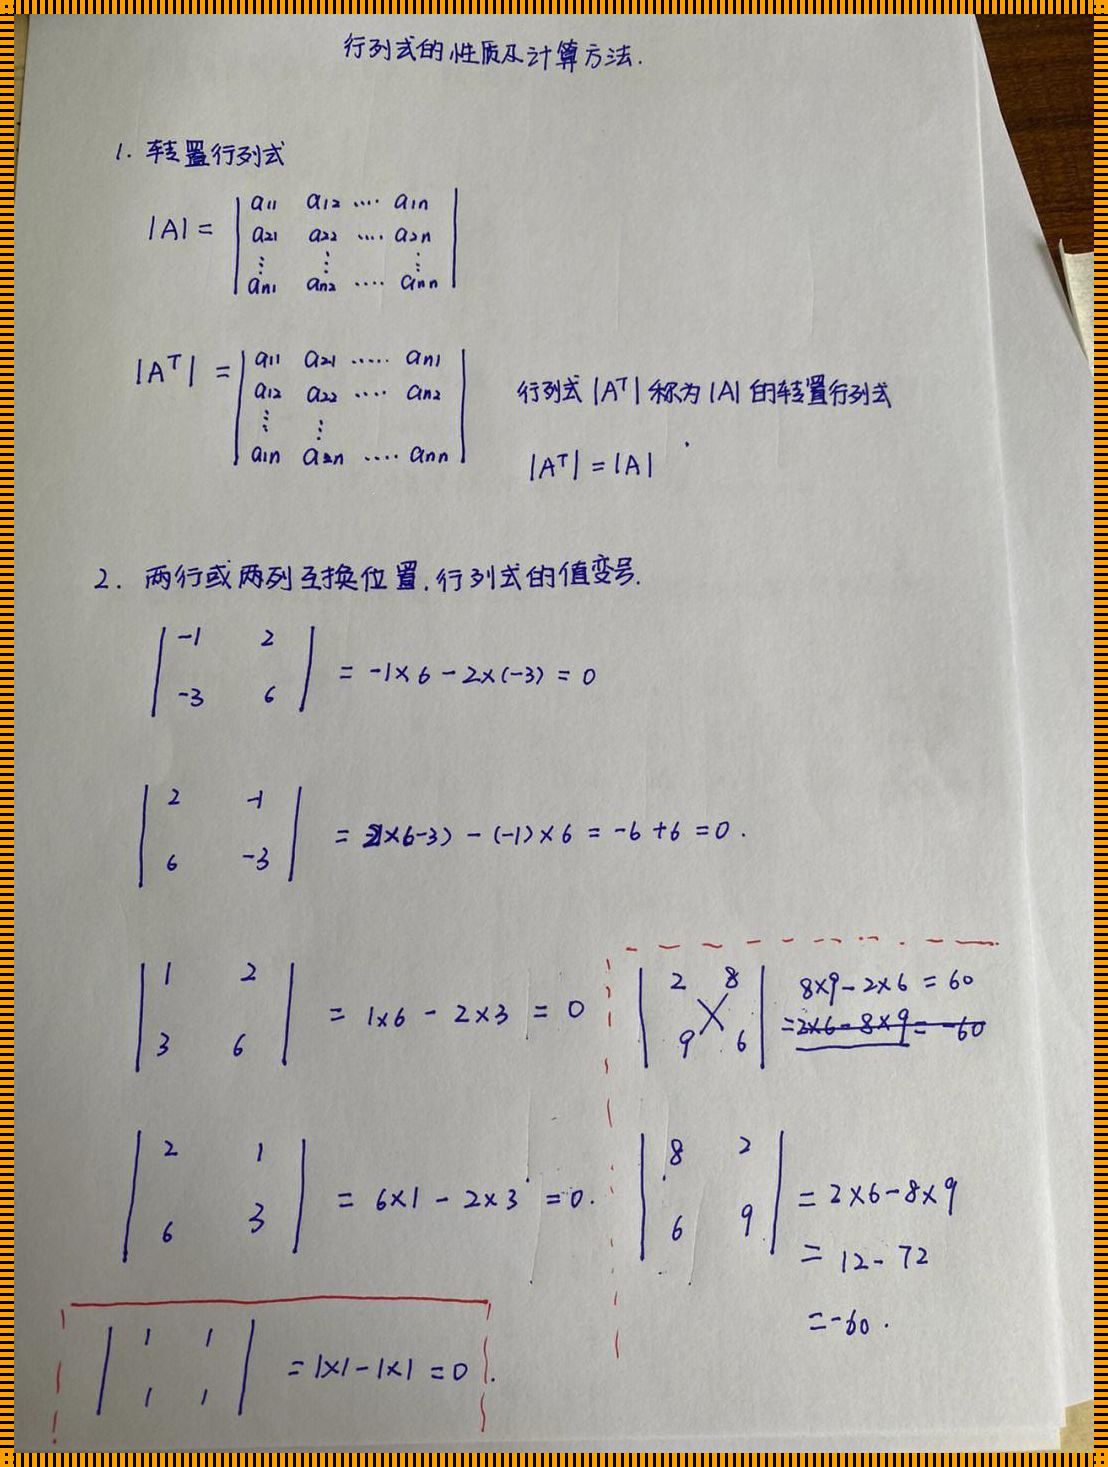 行列式的性质及计算方法.
1. 转置行列式
|A| = | a11 a12 .... a1n |
| a21 a22 .... a2n |
| ⋮ ⋮ ⋮ |
| an1 an2 .... ann |
|A^T| = | a11 a21 ..... an1 |
| a12 a22 .... an2 |
| ⋮ ⋮ |
| a1n a2n .... ann |
行列式 |A^T| 称为 |A| 的转置行列式
|A^T| = |A|
2. 两行或两列互换位置,行列式的值变号.
| -1 2 |
| -3 6 | = -1×6-2×(-3) = 0
| 2 -1 |
| 6 -3 | = 2×6-3) - (-1)×6 = -6+6 = 0.
| 1 2 |
| 3 6 | = 1×6 - 2×3 = 0
| 2 8 | 8×9-2×6 = 60
| 9 6 | = 2×6-8×9 = -60
| 2 1 |
| 6 3 | = 6×1 - 2×3 = 0.
| 8 2 |
| 6 9 | = 2×6-8×9
= 12-72
= -60.
| 1 1 |
| 1 1 | = 1×1-1×1 = 0.